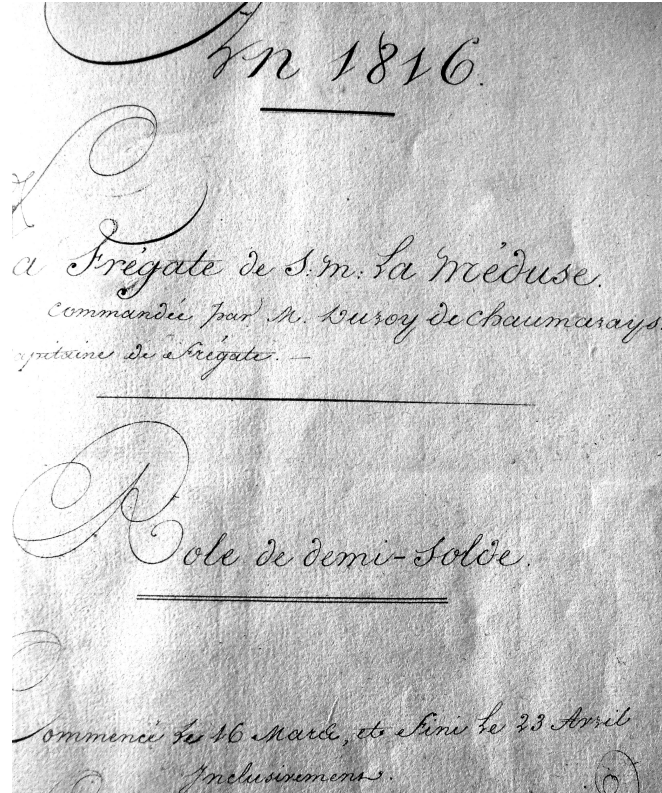 En 1816.
La Frégate de S. M. La Méduse.
commandée par M. Duroy de chaumarays.
Capitaine de Frégate. —
Role de demi-Solde.
Commencé le 16 Mars, et Fini le 23 Avril
Inclusivement.